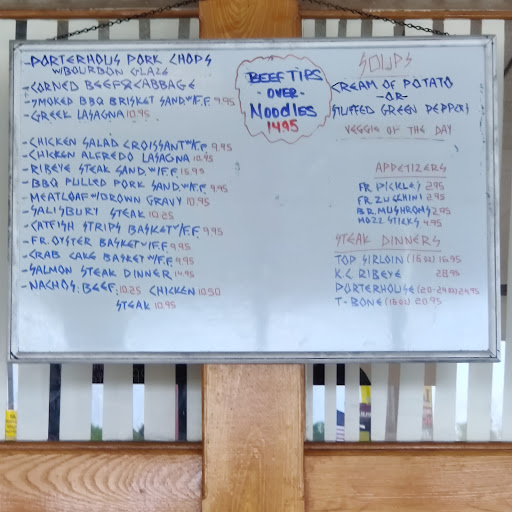 -PORTERHOUS PORK CHOPS
W/BOURBON GLAZE
-CORNED BEEF & CABBAGE
-SMOKED BBQ BRISKET SAND W/F.F 9.95
-GREEK LASAGNA 10.95
-CHICKEN SALAD CROISSANT W/F.F 9.95
-CHICKEN ALFREDO LASAGNA 10.95
-RIBEYE STEAK SAND. W/F.F 15.95
-BBQ PULLED PORK SAND. W/F.F 9.95
-MEATLOAF W/BROWN GRAVY 10.95
-SALISBURY STEAK 10.25
-CATFISH STRIPS BASKET W/F.F. 9.95
-FR. OYSTER BASKET W/F.F 9.95
-CRAB CAKE BASKET W/F.F 9.95
-SALMON STEAK DINNER 14.95
-NACHOS: BEEF: 10.25 CHICKEN 10.50
STEAK 10.95
BEEF TIPS
-OVER-
Noodles
1495
SOUPS
CREAM OF POTATO
-OR-
STUFFED GREEN PEPPERS
VEGGIE OF THE DAY
APPETIZERS
FR. PICKLES 2.95
FR. ZUCCHINI 2.95
BR. MUSHROMS 2.95
MOZZ STICKS 4.95
STEAK DINNERS
TOP SIRLOIN (16 oz) 16.95
K.C. RIBEYE 28.95
PORTERHOUSE (20-24oz) 24.95
T-BONE (16oz) 20.95